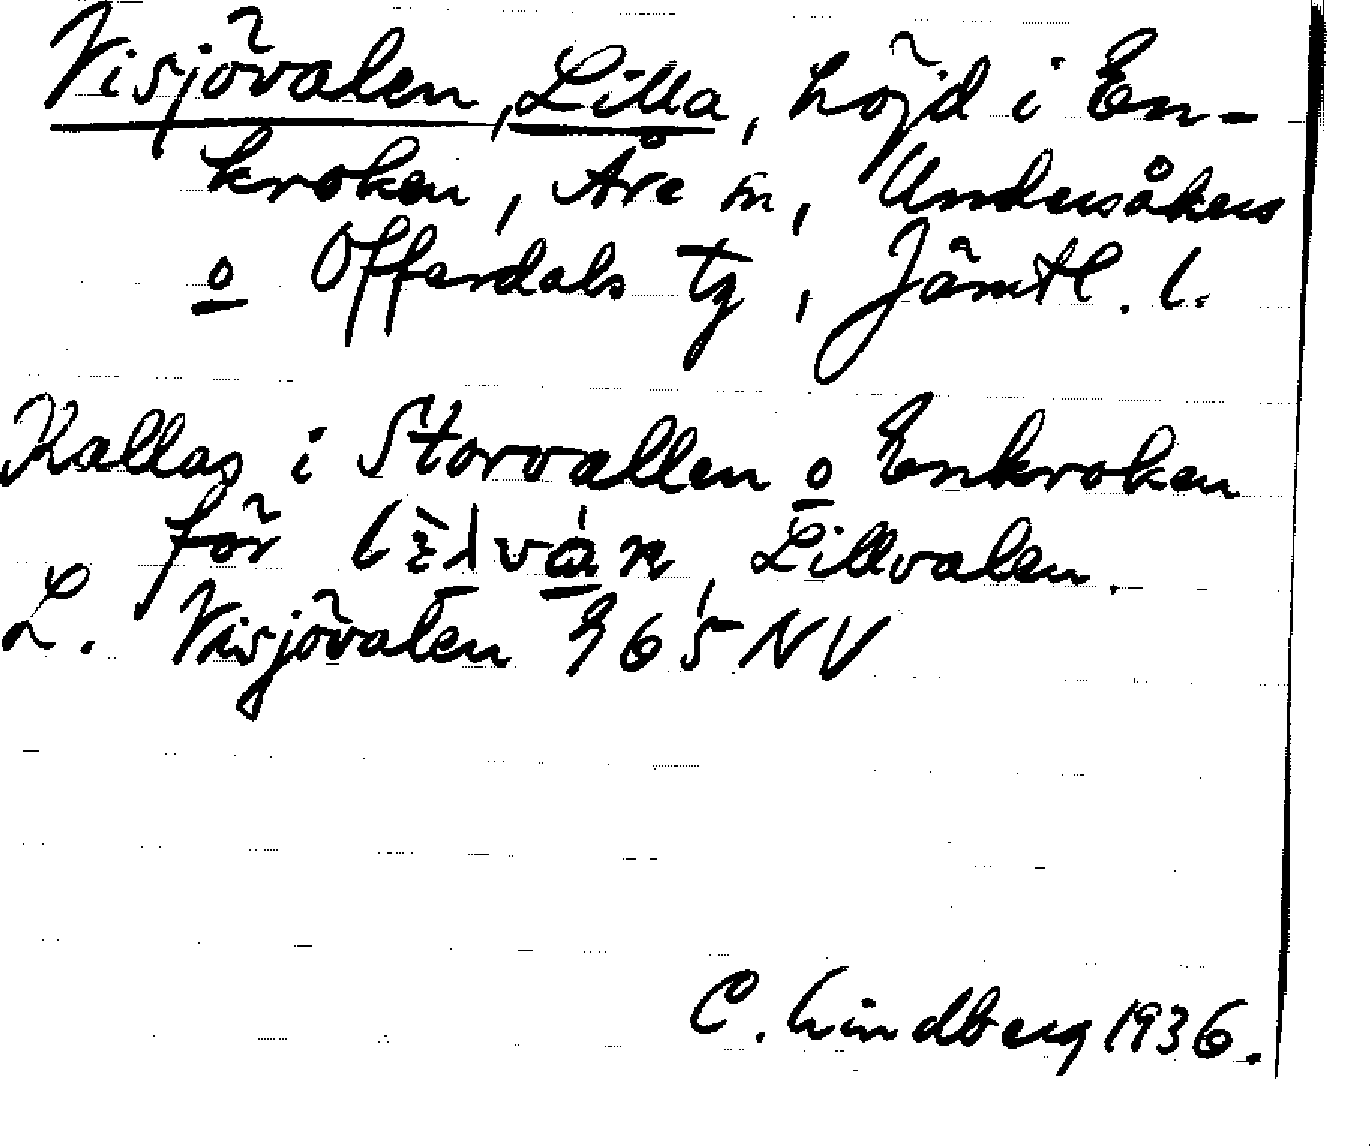 Visjövalen, Lilla, höjd i En-
kroken, Åre sn, Undersåkers
o Offerdals tg, Jämtl. l.
Kallas i Storvallen o Enkroken
för Lillvalen.
L. Visjövalen 365 NV
C. Lindberg 1936.